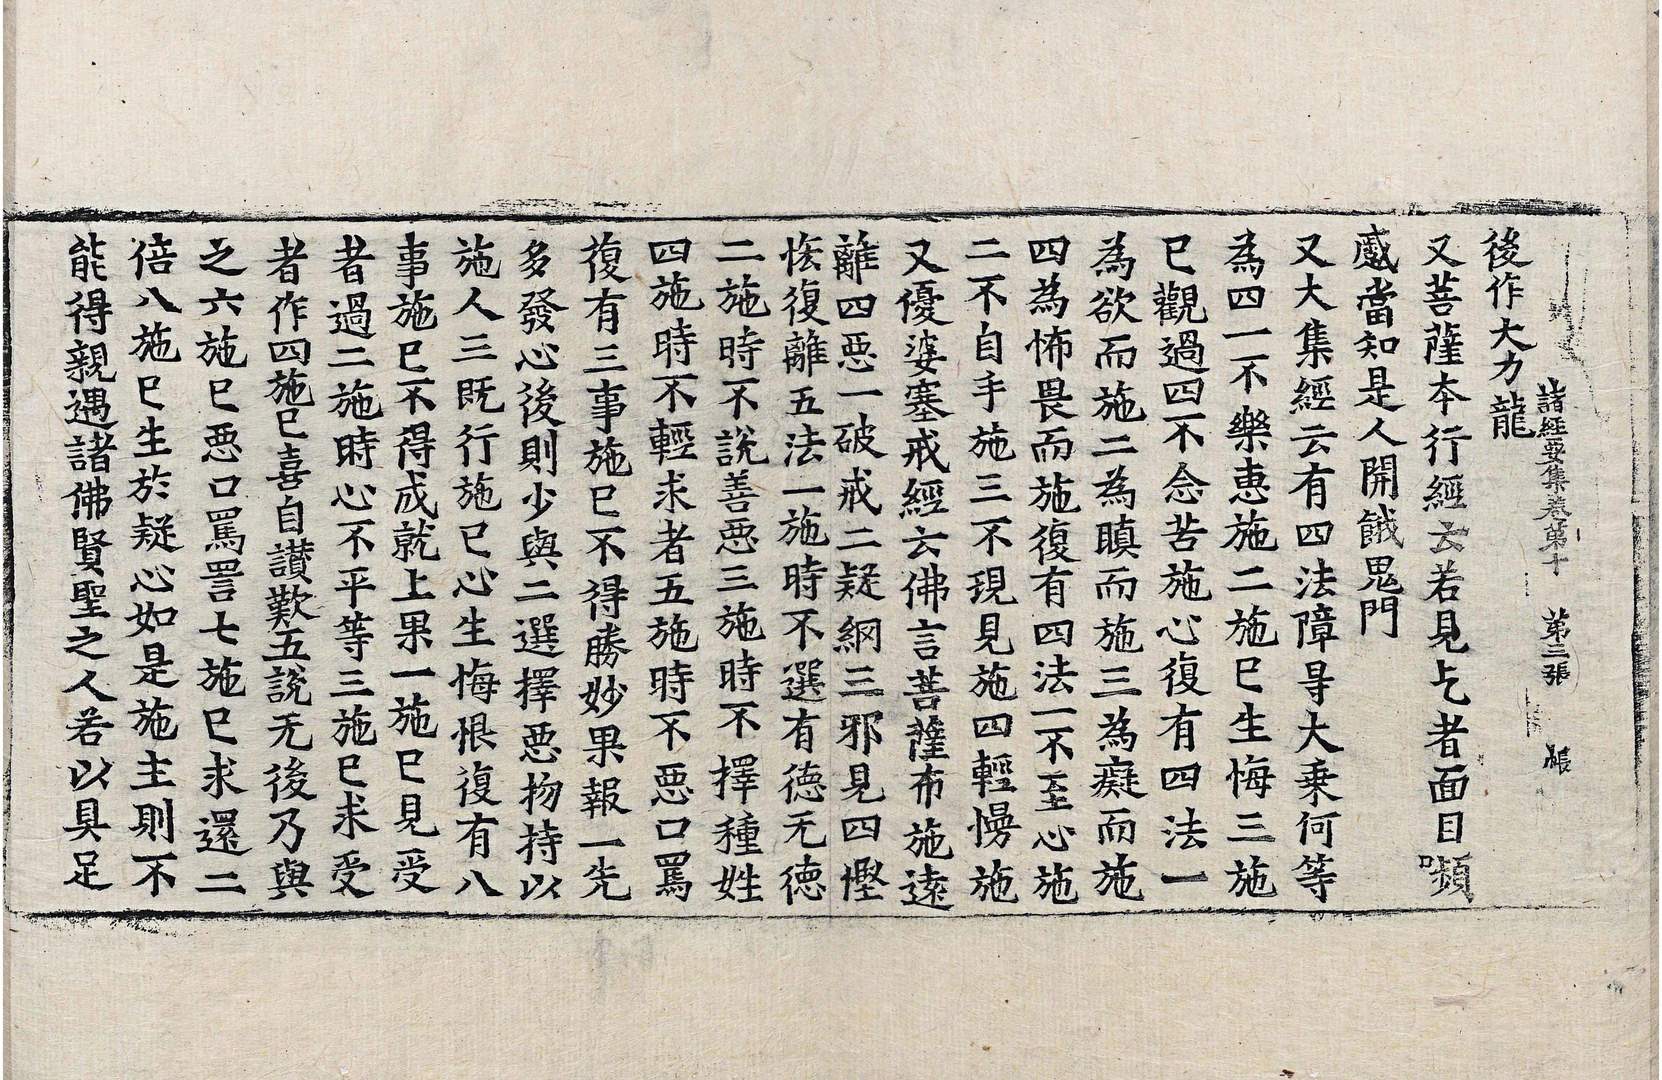 諸經要集卷第十 第二張 帳
後作大力龍
又菩薩本行經云若見乞者面目嚬
慼當知是人開餓鬼門
又大集經云有四法障导大乗何等
為四一不樂惠施二施已生悔三施
已觀過四不念苦施心復有四法一
為欲而施二為瞋而施三為癡而施
四為怖畏而施復有四法一不至心施
二不自手施三不現見施四輕慢施
又優婆塞戒經云佛言菩薩布施遠
離四惡一破戒二疑網三邪見四慳
悋復離五法一施時不選有德无德
二施時不說善惡三施時不擇種姓
四施時不輕求者五施時不惡口罵
復有三事施已不得勝妙果報一先
多發心後則少與二選擇惡物持以
施人三既行施已心生悔恨復有八
事施已不得成就上果一施已見受
者過二施時心不平等三施已求受
者作四施已喜自讃歎五說无後乃與
之六施已惡口罵詈七施已求還二
倍八施已生於疑心如是施主則不
能得親遇諸佛賢聖之人若以具足